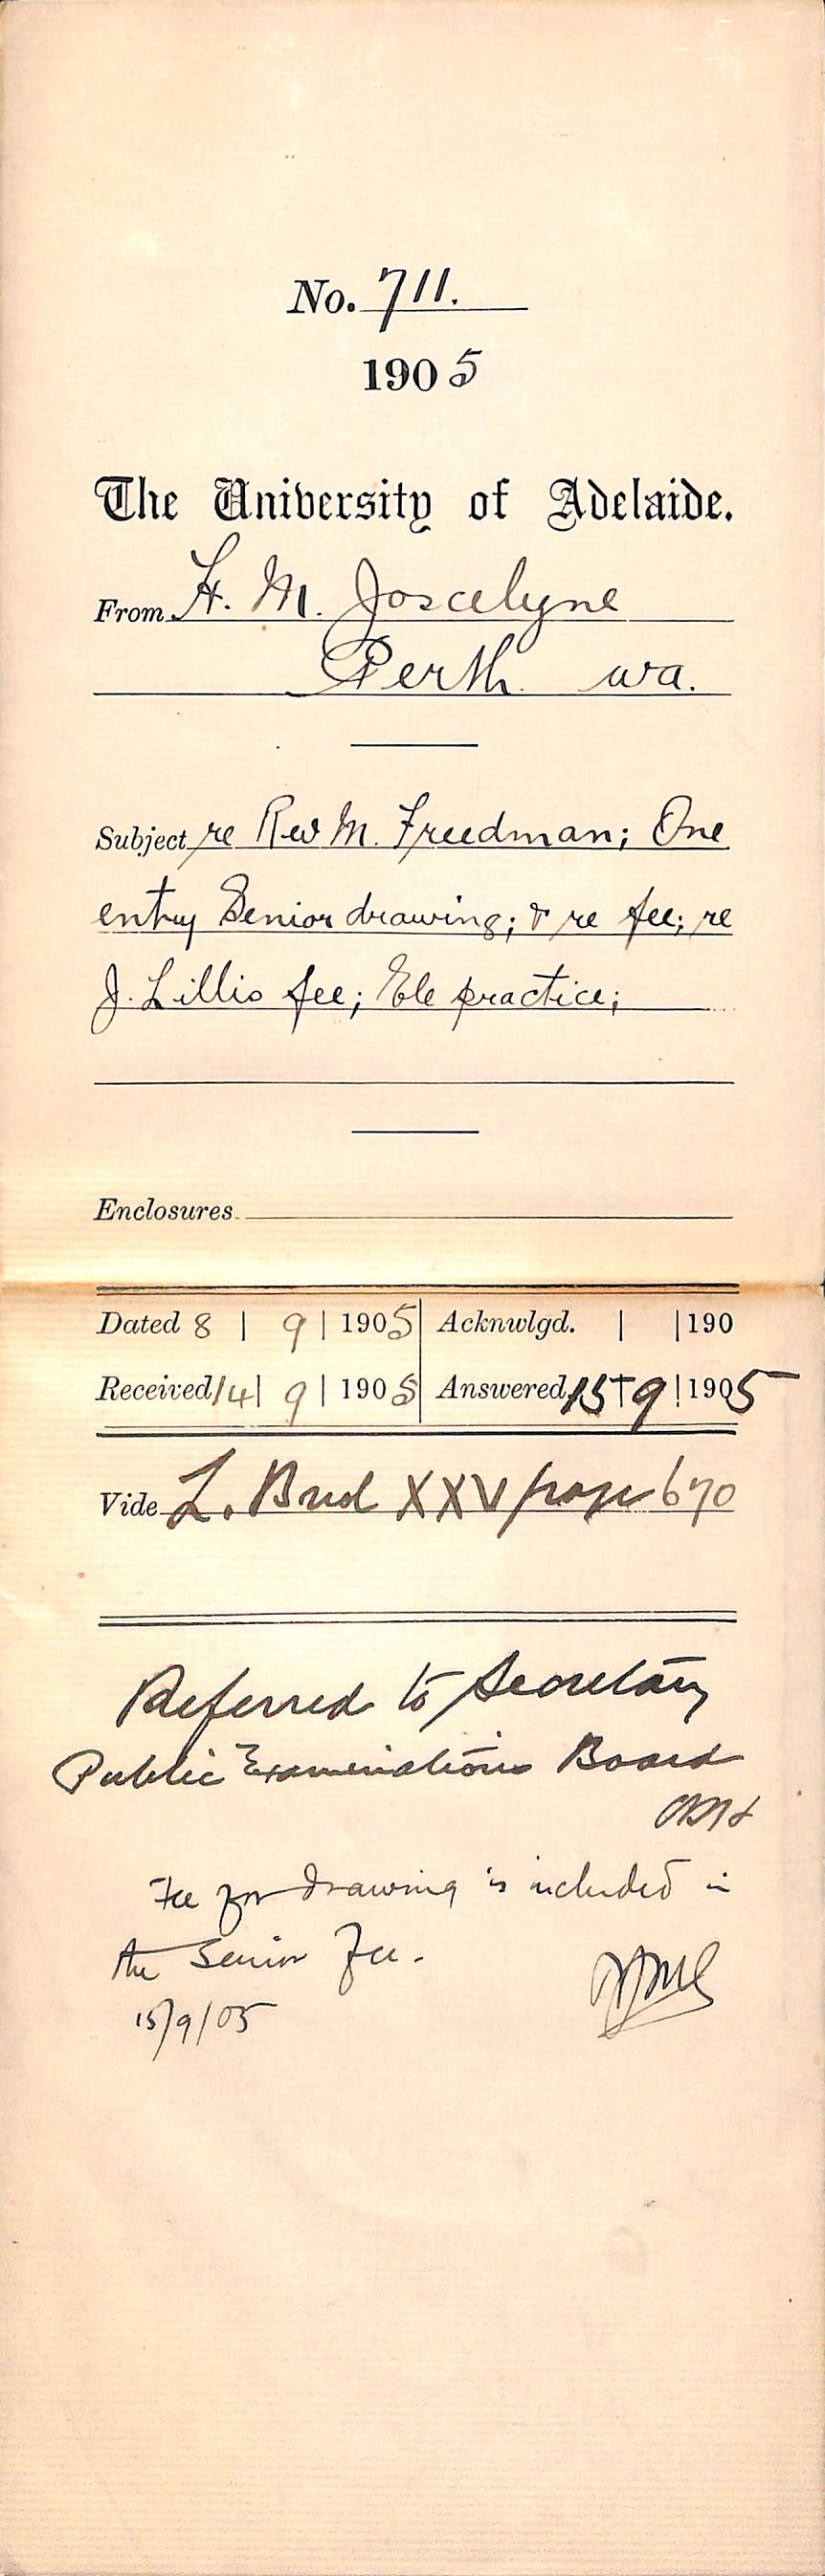 No. 711.
1905
The University of Adelaide.
From H. M. Joscelyne
Perth wa.
Subject re Rev M. Freedman; One
entry Senior drawing; & re fee; re
J. Lillis fee; Ele practice;
Enclosures
Dated 8 | 9 | 1905 Acknwlgd. | | 190
Received 14 | 9 | 1905 Answered 15 9 | 1905
Vide L. XXV page 670
Referred to Secretary
Public Examinations Board
Fee for drawing is included in
the Senior Fee.
15/9/05